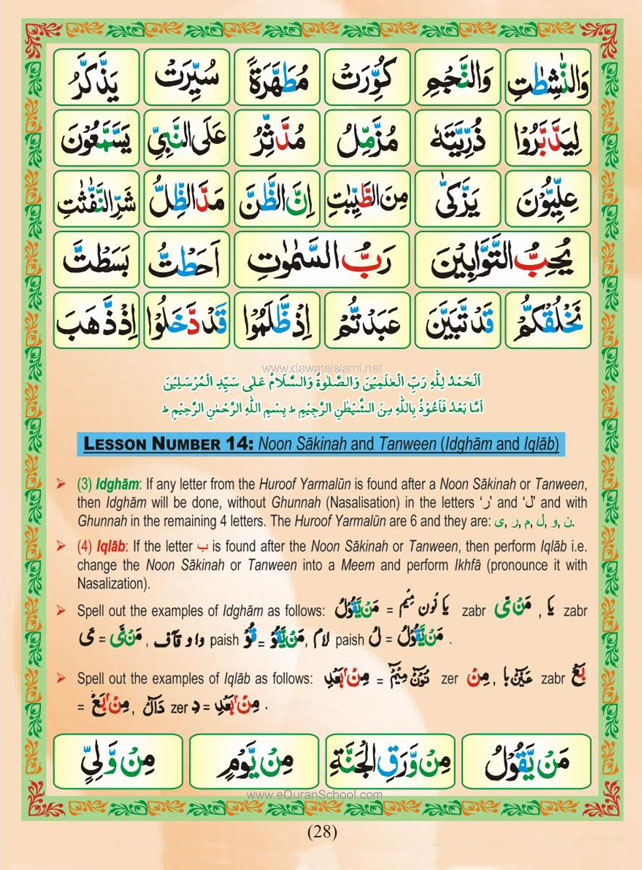 وَالنّٰشِطٰتِ وَالنَّجْمِ كُوِّرَتْ مُطَهَّرَةً سُيِّرَتْ يَذَّكَّرُ
لِيَدَّبَّرُوْا ذُرِّيَّتَهٗ مُزَّمِّلُ مُدَّثِّرُ عَلَى النَّبِيِّ يَسَّمَّعُوْنَ
عِلِّيُّوْنَ يَزَّكّٰى مِنَ الطَّيِّبٰتِ اِنَّ الظَّنَّ مَدَّ الظِّلَّ شَرِّ النَّفّٰثٰتِ
يُحِبُّ التَّوَّابِيْنَ رَبُّ السَّمٰوٰتِ اَحَطْتُّ بَسَطْتَّ
نَخْلُقْكُّمْ قَدْ تَّبَيَّنَ عَبَدْتُّمْ اِذْ ظَّلَمُوْا قَدْ دَّخَلُوْا اِذْ ذَّهَبَ
www.dawateislami.net
اَلْحَمْدُ لِلّٰهِ رَبِّ الْعٰلَمِيْنَ وَالصَّلٰوةُ وَالسَّلَامُ عَلٰى سَيِّدِ الْمُرْسَلِيْنَ
اَمَّا بَعْدُ فَاَعُوْذُ بِاللّٰهِ مِنَ الشَّيْطٰنِ الرَّجِيْمِ ط بِسْمِ اللّٰهِ الرَّحْمٰنِ الرَّحِيْمِ ط
LESSON NUMBER 14: Noon Sākinah and Tanween (Idghām and Iqlāb)
➤ (3) Idghām: If any letter from the Huroof Yarmalūn is found after a Noon Sākinah or Tanween,
then Idghām will be done, without Ghunnah (Nasalisation) in the letters ‘ر’ and ‘ل’ and with
Ghunnah in the remaining 4 letters. The Huroof Yarmalūn are 6 and they are: ی, ر, م, ل, و, ن.
➤ (4) Iqlāb: If the letter ب is found after the Noon Sākinah or Tanween, then perform Iqlāb i.e.
change the Noon Sākinah or Tanween into a Meem and perform Ikhfā (pronounce it with
Nasalization).
➤ Spell out the examples of Idghām as follows: مَنْ يَّقُوْلُ = مِيْم نُوْن يَا zabr مَنْ ىَ, يَا zabr
ىَ = مَنْ يَّ, وَاو قَاف paish قُوْ = مَنْ يَّقُوْ, لَامْ paish لُ = مَنْ يَّقُوْلُ .
➤ Spell out the examples of Iqlāb as follows: مِنْۢ بَعْدِ = مِيْمْ نُوْنْ zer مِنْۢ, عَيْنْ بَا zabr بَعْ
= مِنْۢ بَعْ, دَالْ zer دِ = مِنْۢ بَعْدِ .
مَنْ يَّقُوْلُ مِنْ وَّرَقِ الْجَنَّةِ مِنْ يَّوْمٍ مِنْ وَّلِيٍّ
www.eQuranSchool.com
(28)